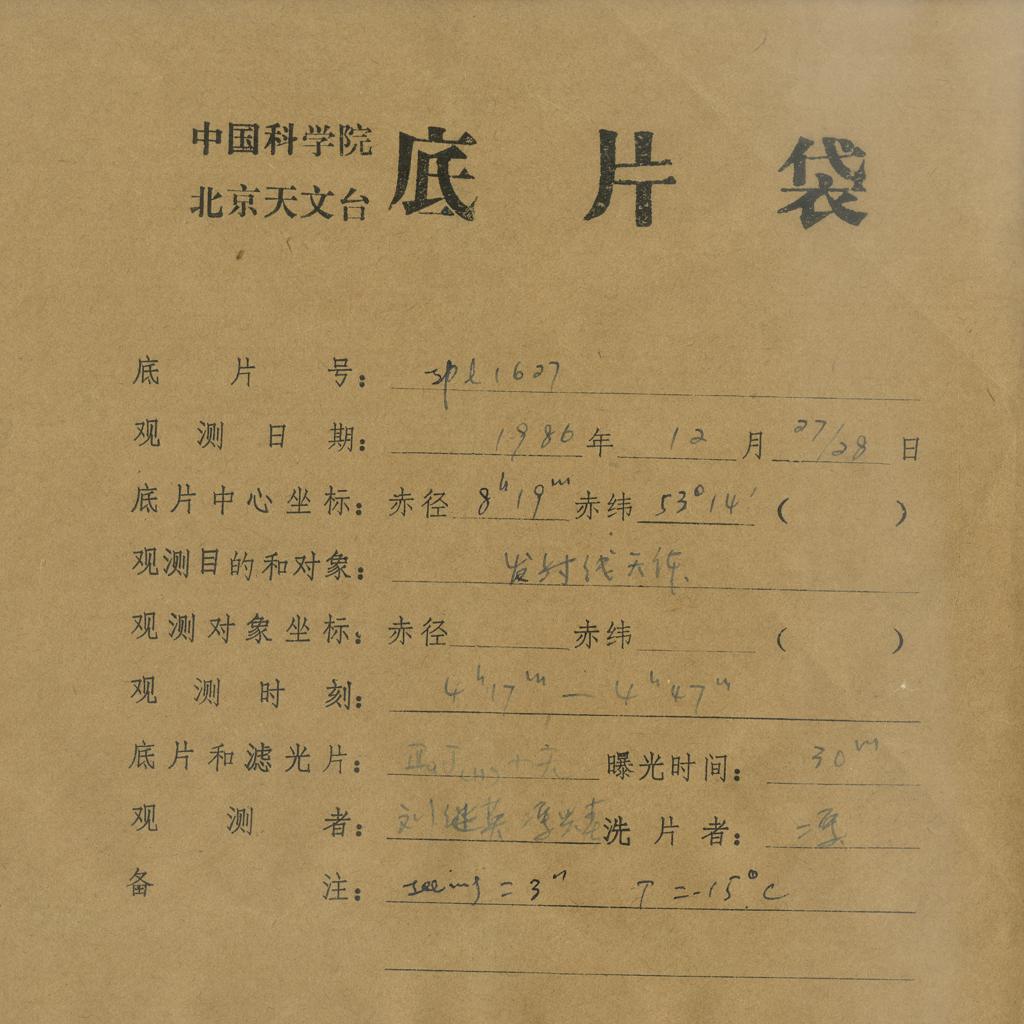 中国科学院
北京天文台
底片袋
底片号： spl1627
观测日期： 1986年12月27/28日
底片中心坐标：赤径 8h19m 赤纬 53°14′ （ ）
观测目的和对象： 发射线天体
观测对象坐标：赤径 赤纬 （ ）
观测时刻： 4h17m — 4h47m
底片和滤光片： 曝光时间： 30m
观测者： 刘继英 洗片者：
备注： seeing = 3" T = -15°C